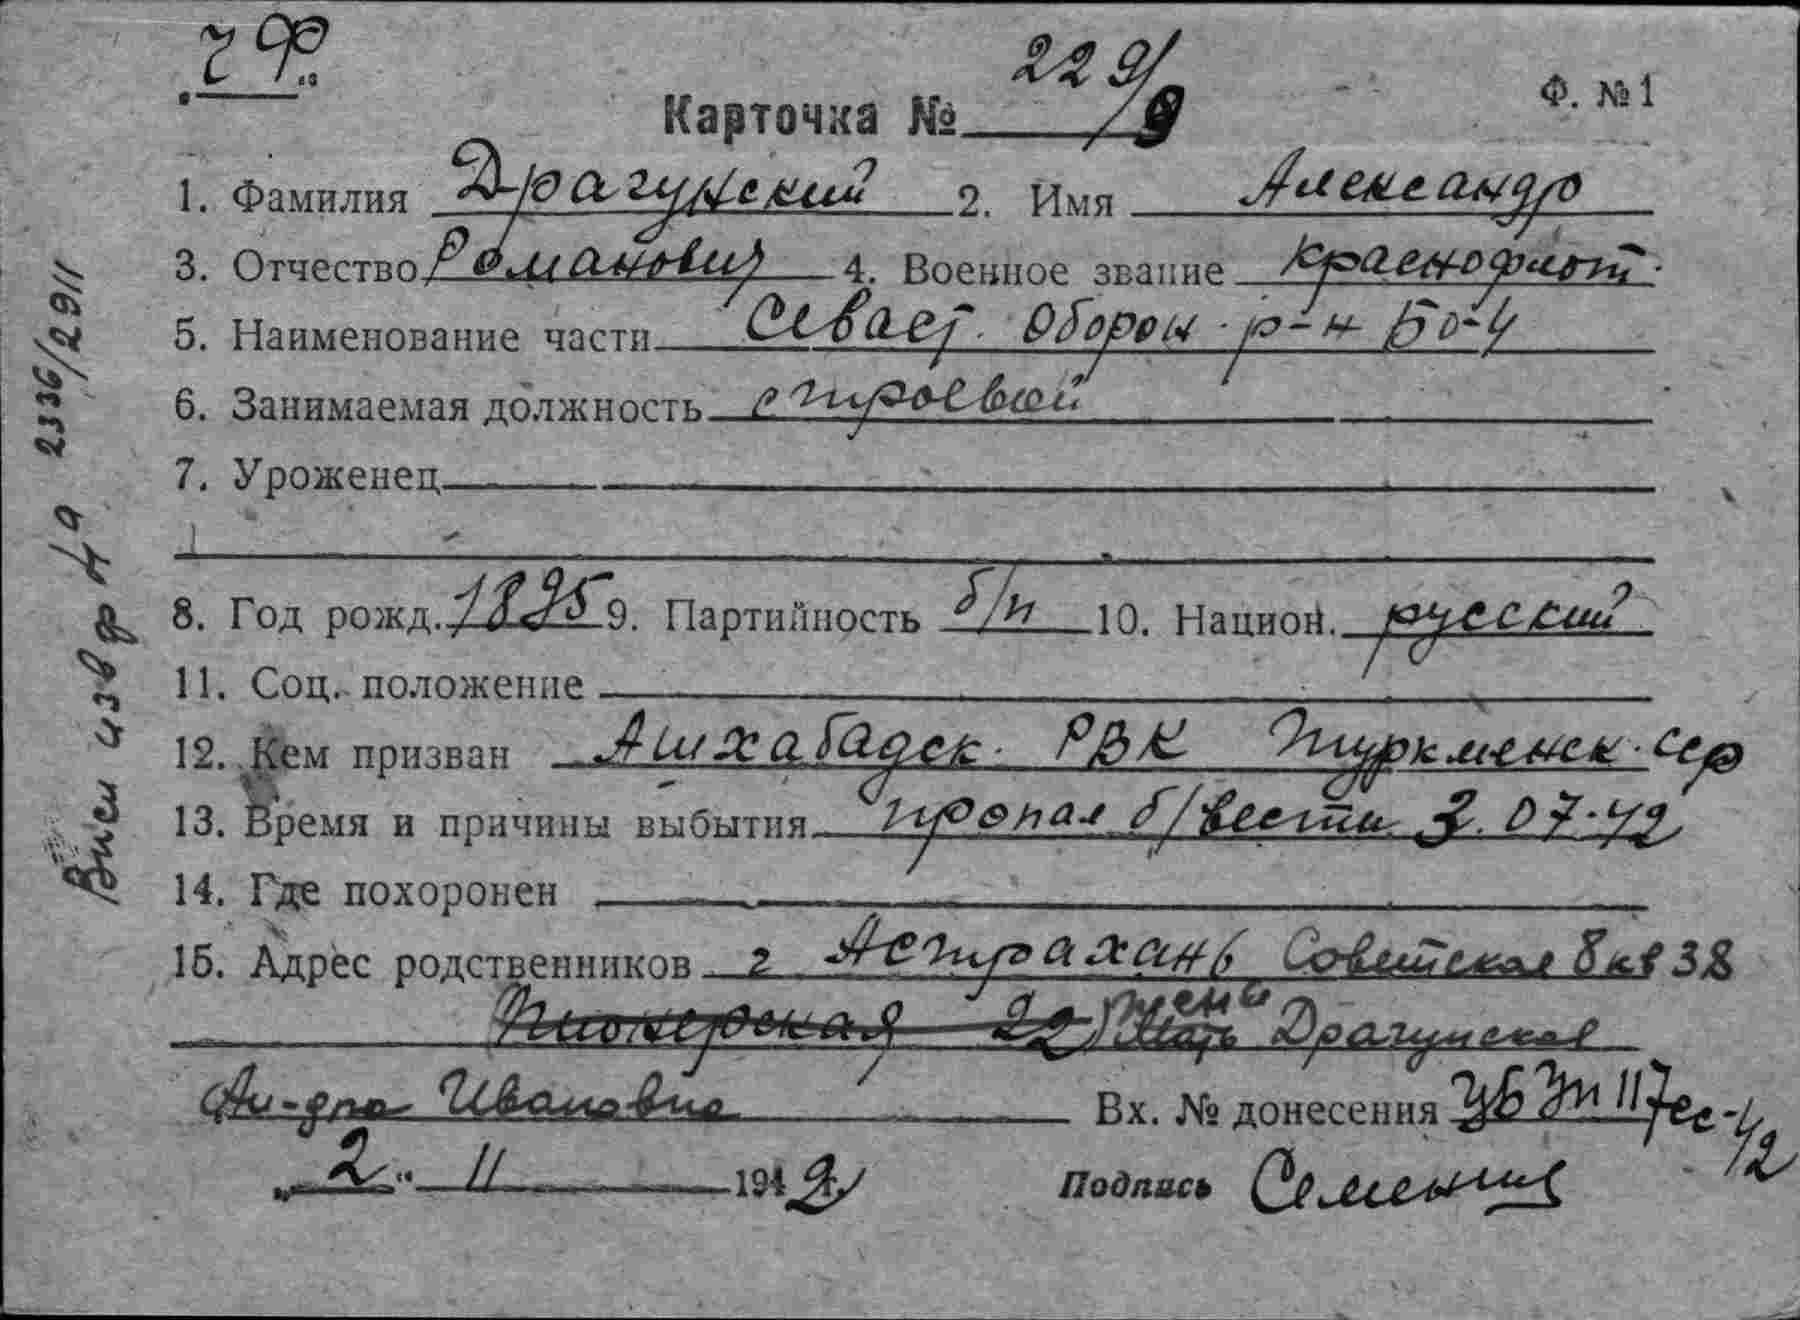 ЧФ
229/9
Ф. №1
Карточка №
1. Фамилия Драгунский 2. Имя Александр
3. Отчество Романович 4. Военное звание краснофлот.
5. Наименование части Севаст. оборон. р-н БО-4
6. Занимаемая должность строевой
7. Уроженец
8. Год рожд. 1895 9. Партийность б/п 10. Национ. русский
11. Соц. положение
12. Кем призван Ашхабадск. РВК Туркменск. сср
13. Время и причины выбытия пропал б/вести 3.07.42
14. Где похоронен
15. Адрес родственников г Астрахань Советская 8 кв 38
Пионерская 22 жена Мать Драгунская
Ал-дра Ивановна Вх. № донесения 117сс-42
"2" 11 1942 Подпись
изв ф 4а 2336/2911